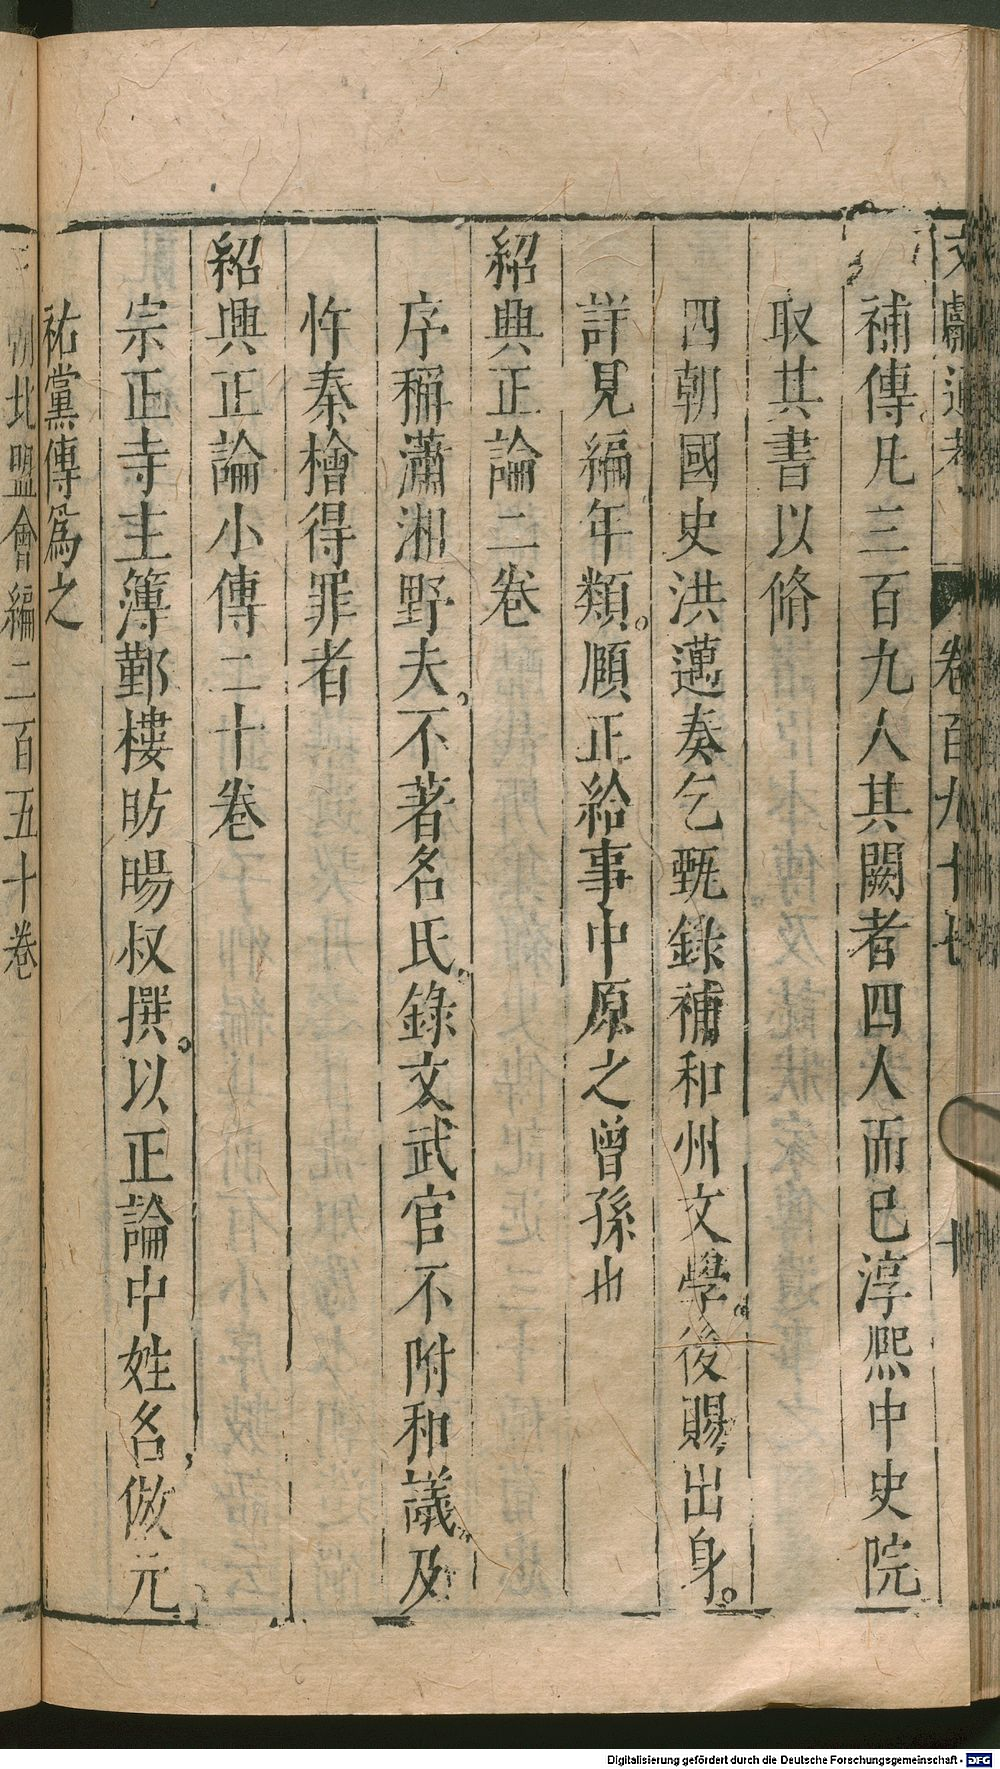 文獻通考 卷百九十七 十
補傳凡三百九人其闕者四人而已淳熙中史院
取其書以脩
四朝國史洪邁奏乞甄錄補和州文學後賜出身
詳見編年類頤正給事中原之曾孫也
紹興正論二卷
序稱瀟湘野夫不著名氏錄文武官不附和議及
忤秦檜得罪者
紹興正論小傳二十卷
宗正寺主簿鄞樓昉暘叔撰以正論中姓名倣元
祐黨傳爲之
朝北盟會編二百五十卷
Digitalisierung gefördert durch die Deutsche Forschungsgemeinschaft - DFG